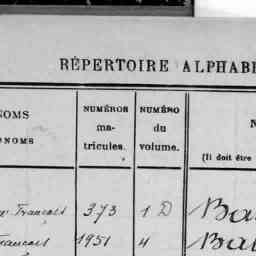 RÉPERTOIRE ALPHABÉ
NOMS
ONOMS
NUMÉROS
ma-
tricules.
NUMÉRO
du
volume.
N
(Il doit être
Français 373 1 D Ba
Français 1951 4 Ba